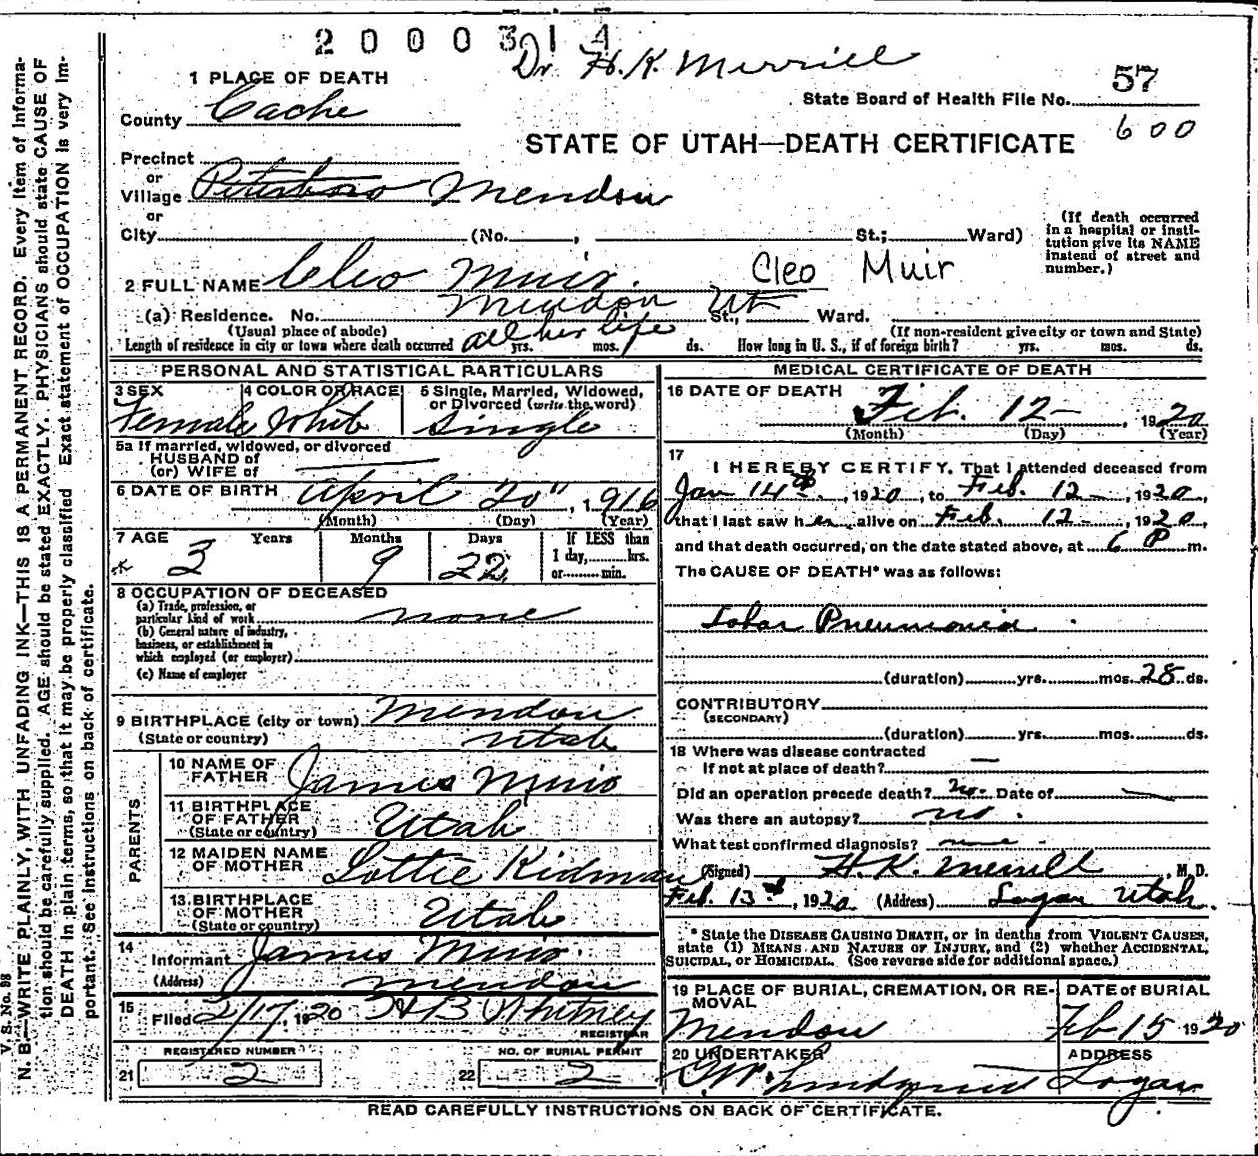 2000314
Dr H. K. Merrill
1 PLACE OF DEATH
57
County Cache
State Board of Health File No.
600
STATE OF UTAH—DEATH CERTIFICATE
Precinct
or
Village Petersboro Mendon
or
City (No. , St.; Ward)
(If death occurred in a hospital or insti-
tution give its NAME
instead of street and
number.)
2 FULL NAME Cleo Muir. Cleo Muir
(a) Residence. No. Mendon Ut St., Ward.
(Usual place of abode) (If non-resident give city or town and State)
Length of residence in city or town where death occurred all her life yrs. mos. ds. How long in U. S., if of foreign birth? yrs. mos. ds.
PERSONAL AND STATISTICAL PARTICULARS
3 SEX Female
4 COLOR OR RACE White
5 Single, Married, Widowed,
or Divorced (write the word)
Single
5a If married, widowed, or divorced
HUSBAND of
(or) WIFE of
6 DATE OF BIRTH April 20", 1916
(Month) (Day) (Year)
7 AGE Years Months Days If LESS than
1 day, hrs.
or min.
3 9 22
8 OCCUPATION OF DECEASED
(a) Trade, profession, or
particular kind of work none
(b) General nature of industry,
business, or establishment in
which employed (or employer)
(c) Name of employer
9 BIRTHPLACE (city or town) Mendon
(State or country) Utah
PARENTS
10 NAME OF
FATHER James Muir
11 BIRTHPLACE
OF FATHER
(State or country) Utah
12 MAIDEN NAME
OF MOTHER Lottie Kidman
13 BIRTHPLACE
OF MOTHER
(State or country) Utah
14
Informant James Muir
(Address) Mendon
15 Filed 2/17, 1920 H B Whitney
REGISTRAR
REGISTERED NUMBER
21 2
NO. OF BURIAL PERMIT
22 2
MEDICAL CERTIFICATE OF DEATH
16 DATE OF DEATH
Feb. 12 , 1920
(Month) (Day) (Year)
17
I HEREBY CERTIFY, That I attended deceased from
Jan 14th, 1920, to Feb. 12, 1920,
that I last saw her alive on Feb. 12, 1920,
and that death occurred, on the date stated above, at 6 P m.
The CAUSE OF DEATH* was as follows:
Lobar Pneumonia
(duration) yrs. mos. 28 ds.
CONTRIBUTORY
(SECONDARY)
(duration) yrs. mos. ds.
18 Where was disease contracted
If not at place of death?
Did an operation precede death? no. Date of
Was there an autopsy? no.
What test confirmed diagnosis? none
(Signed) H. K. Merrill, M. D.
Feb. 13th, 1920 (Address) Logan Utah.
* State the DISEASE CAUSING DEATH, or in deaths from VIOLENT CAUSES,
state (1) MEANS AND NATURE OF INJURY, and (2) whether ACCIDENTAL,
SUICIDAL, or HOMICIDAL. (See reverse side for additional space.)
19 PLACE OF BURIAL, CREMATION, OR RE-
MOVAL
Mendon
DATE of BURIAL
Feb 15 1920
20 UNDERTAKER
Lindquist
ADDRESS
Logan
READ CAREFULLY INSTRUCTIONS ON BACK OF CERTIFICATE.
V. S. No. 98
N. B.—WRITE PLAINLY, WITH UNFADING INK—THIS IS A PERMANENT RECORD. Every item of informa-
tion should be carefully supplied. AGE should be stated EXACTLY. PHYSICIANS should state CAUSE OF
DEATH in plain terms, so that it may be properly classified. Exact statement of OCCUPATION is very im-
portant. See instructions on back of certificate.